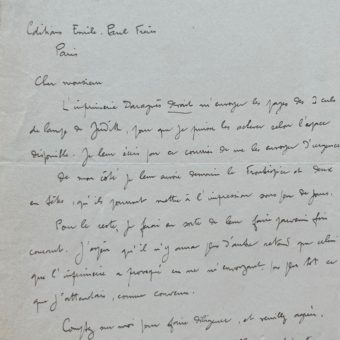 Editions Emile-Paul Frères
Paris
Cher monsieur
L'imprimerie Daragnès devait m'envoyer les pages des 3 culs
de lampe de Judith, pour que je puisse les achever selon l'espace
disponible. Je leur écris par ce courrier de me les envoyer d'urgence
De mon côté je leur envoie demain le frontispice et deux
en têtes, qu'ils pourront mettre à l'impression sous peu de jours.
Pour le reste, je ferai en sorte de leur faire parvenir fin
courant. J'espère qu'il n'y aura plus d'autre retard que celui
que l'imprimerie a provoqué en ne m'envoyant pas plus tôt ce
que j'attendais, comme convenu.
Comptez sur moi pour faire diligence, et veuillez agréer,